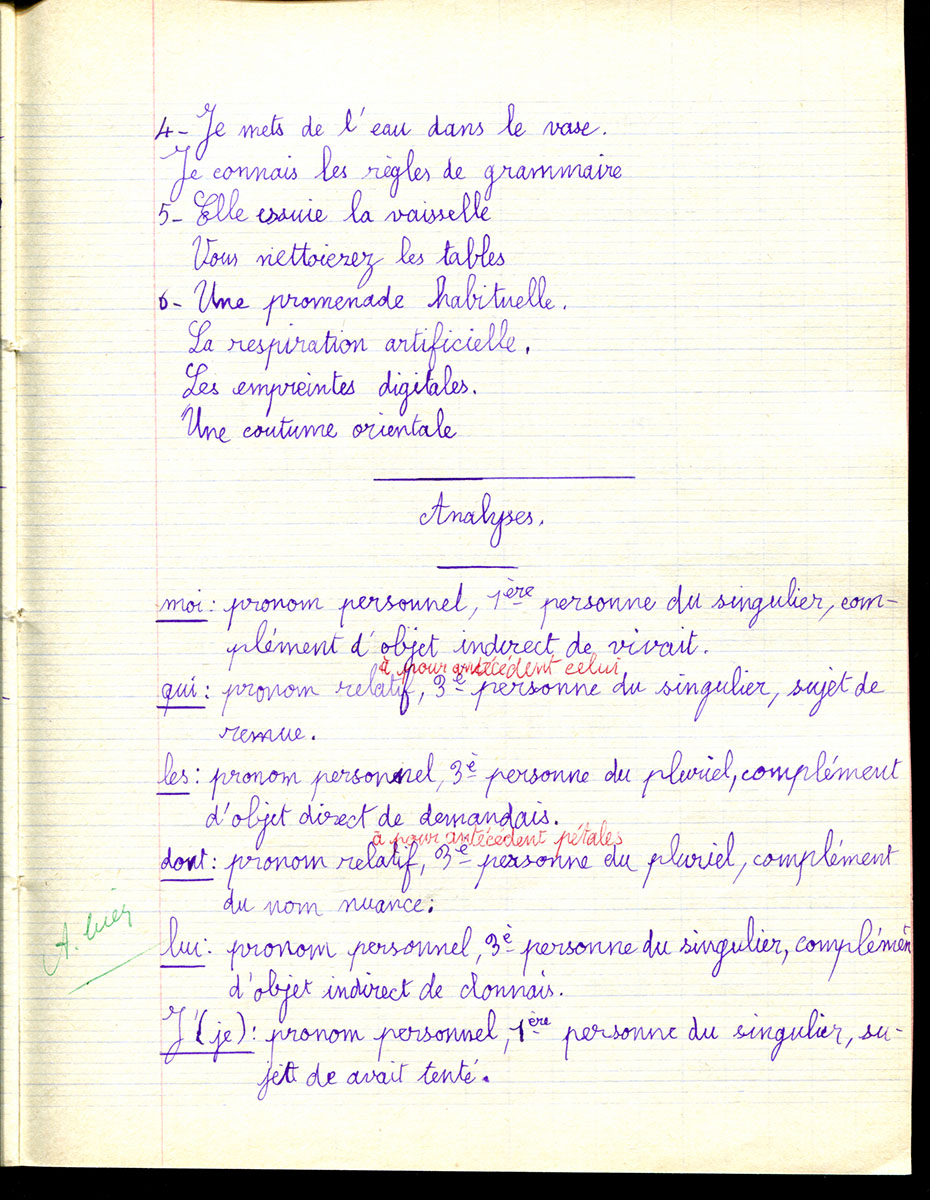 4- Je mets de l'eau dans le vase.
Je connais les règles de grammaire
5- Elle essuie la vaisselle
Vous nettoierez les tables
6- Une promenade habituelle.
La respiration artificielle.
Les empreintes digitales.
Une coutume orientale
Analyses.
moi : pronom personnel, 1ère personne du singulier, com-
plément d'objet indirect de vivait.
à pour antécédent celui
qui : pronom relatif, 3è personne du singulier, sujet de
remue.
les : pronom personnel, 3è personne du pluriel, complément
d'objet direct de demandais.
à pour antécédent pétales
dont : pronom relatif, 3è personne du pluriel, complément
du nom nuance.
lui : pronom personnel, 3è personne du singulier, complémen
d'objet indirect de donnais.
J'(je) : pronom personnel, 1ère personne du singulier, su-
jet de avait tenté.